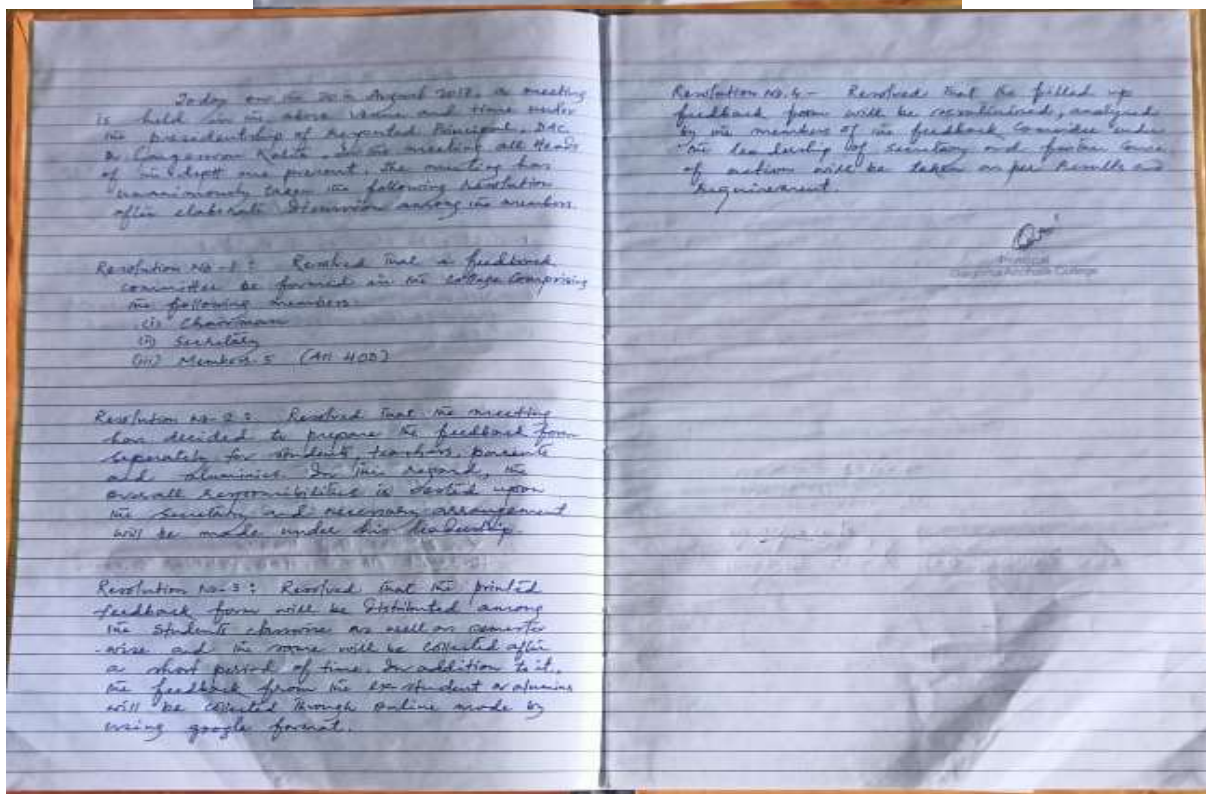 Today on the 20th August 2018, a meeting
is held in the above venue and time under
the presidentship of respected Principal, DAC
Dr. Kalita. In the meeting all Heads
of the deptt are present. The meeting has
unanimously taken the following resolution
after elaborate discussion among the members.
Resolution No-1: Resolved that a feedback
committee be formed in the college comprising
the following members.
(i) Chairman
(ii) Secretary
(iii) Members-5 (All HOD)
Resolution No-2: Resolved that the meeting
has decided to prepare the feedback form
seperately for students, teachers, parents
and aluminies. In this regard, the
overall responsibilities is vested upon
the secretary and necessary arrangement
will be made under his leadership.
Resolution No-3: Resolved that the printed
feedback form will be distributed among
the students classwise as well as semester
-wise and the same will be collected after
a short period of time. In addition to it,
the feedback from the ex-student or alumins
will be collected through online mode by
using google format.
Resolution No. 4- Resolved that the filled up
feedback form will be scrutinised, analysed
by the members of the feedback committee under
the leadership of secretary and further course
of action will be taken as per results and
requirement.
Principal
College